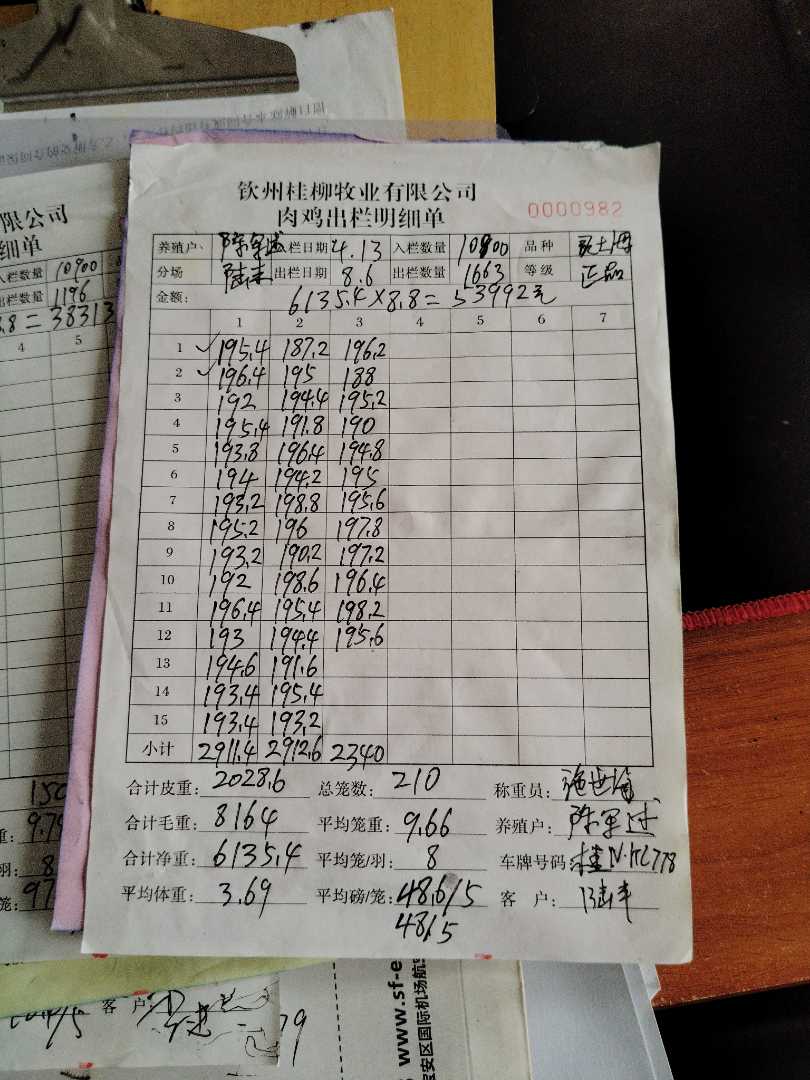 限公司
细单
入栏数量 10900
出栏数量 1196
8.8 = 38313
4 5
钦州桂柳牧业有限公司
肉鸡出栏明细单
0000982
养殖户: 陈军述 入栏日期 4.13 入栏数量 10900 品种
分场 出栏日期 8.6 出栏数量 1663 等级 正品
金额: 6135.4×8.8=53992元
1 2 3 4 5 6 7
1 195.4 187.2 196.2
2 196.4 195 188
3 192 194.4 195.2
4 195.4 191.8 190
5 193.8 196.4 194.8
6 194 194.2 195
7 193.2 198.8 195.6
8 195.2 196 197.8
9 193.2 190.2 197.2
10 192 198.6 196.4
11 196.4 195.4 198.2
12 193 194.4 195.6
13 194.6 191.6
14 193.4 195.4
15 193.4 193.2
小计 2911.4 2912.6 2340
合计皮重: 2028.6 总笼数: 210 称重员:
合计毛重: 8164 平均笼重: 9.66 养殖户: 陈军述
合计净重: 6135.4 平均笼/羽: 8 车牌号码: 桂N·KC778
平均体重: 3.69 平均磅/笼: 48.6/5 客 户:
48/5
客 户
www.sf-e
宝安区国际机场航